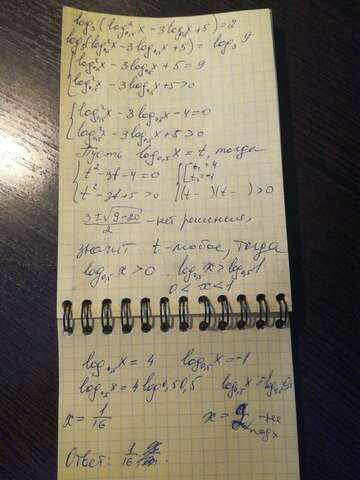 log₃(log²₀,₅x - 3log₀,₅x + 5) = 2
log₃(log²₀,₅x - 3log₀,₅x + 5) = log₃9
{ log²₀,₅x - 3log₀,₅x + 5 = 9
{ log²₀,₅x - 3log₀,₅x + 5 > 0
{ log²₀,₅x - 3log₀,₅x - 4 = 0
{ log²₀,₅x - 3log₀,₅x + 5 > 0
Пусть log₀,₅x = t, тогда
{ t² - 3t - 4 = 0 { [ t₁ = 4
t₂ = -1
{ t² - 3t + 5 > 0 { (t - )(t - ) > 0
(3 ± √(9 - 20))/2 - нет решения,
значит t - любое, тогда
log₀,₅x > 0 log₀,₅x > log₀,₅1
0 < x < 1
log₀,₅x = 4 log₀,₅x = -1
log₀,₅x = 4log₀,₅0,5
x = 1/16 x = 2 - не подх
Ответ: 1/16